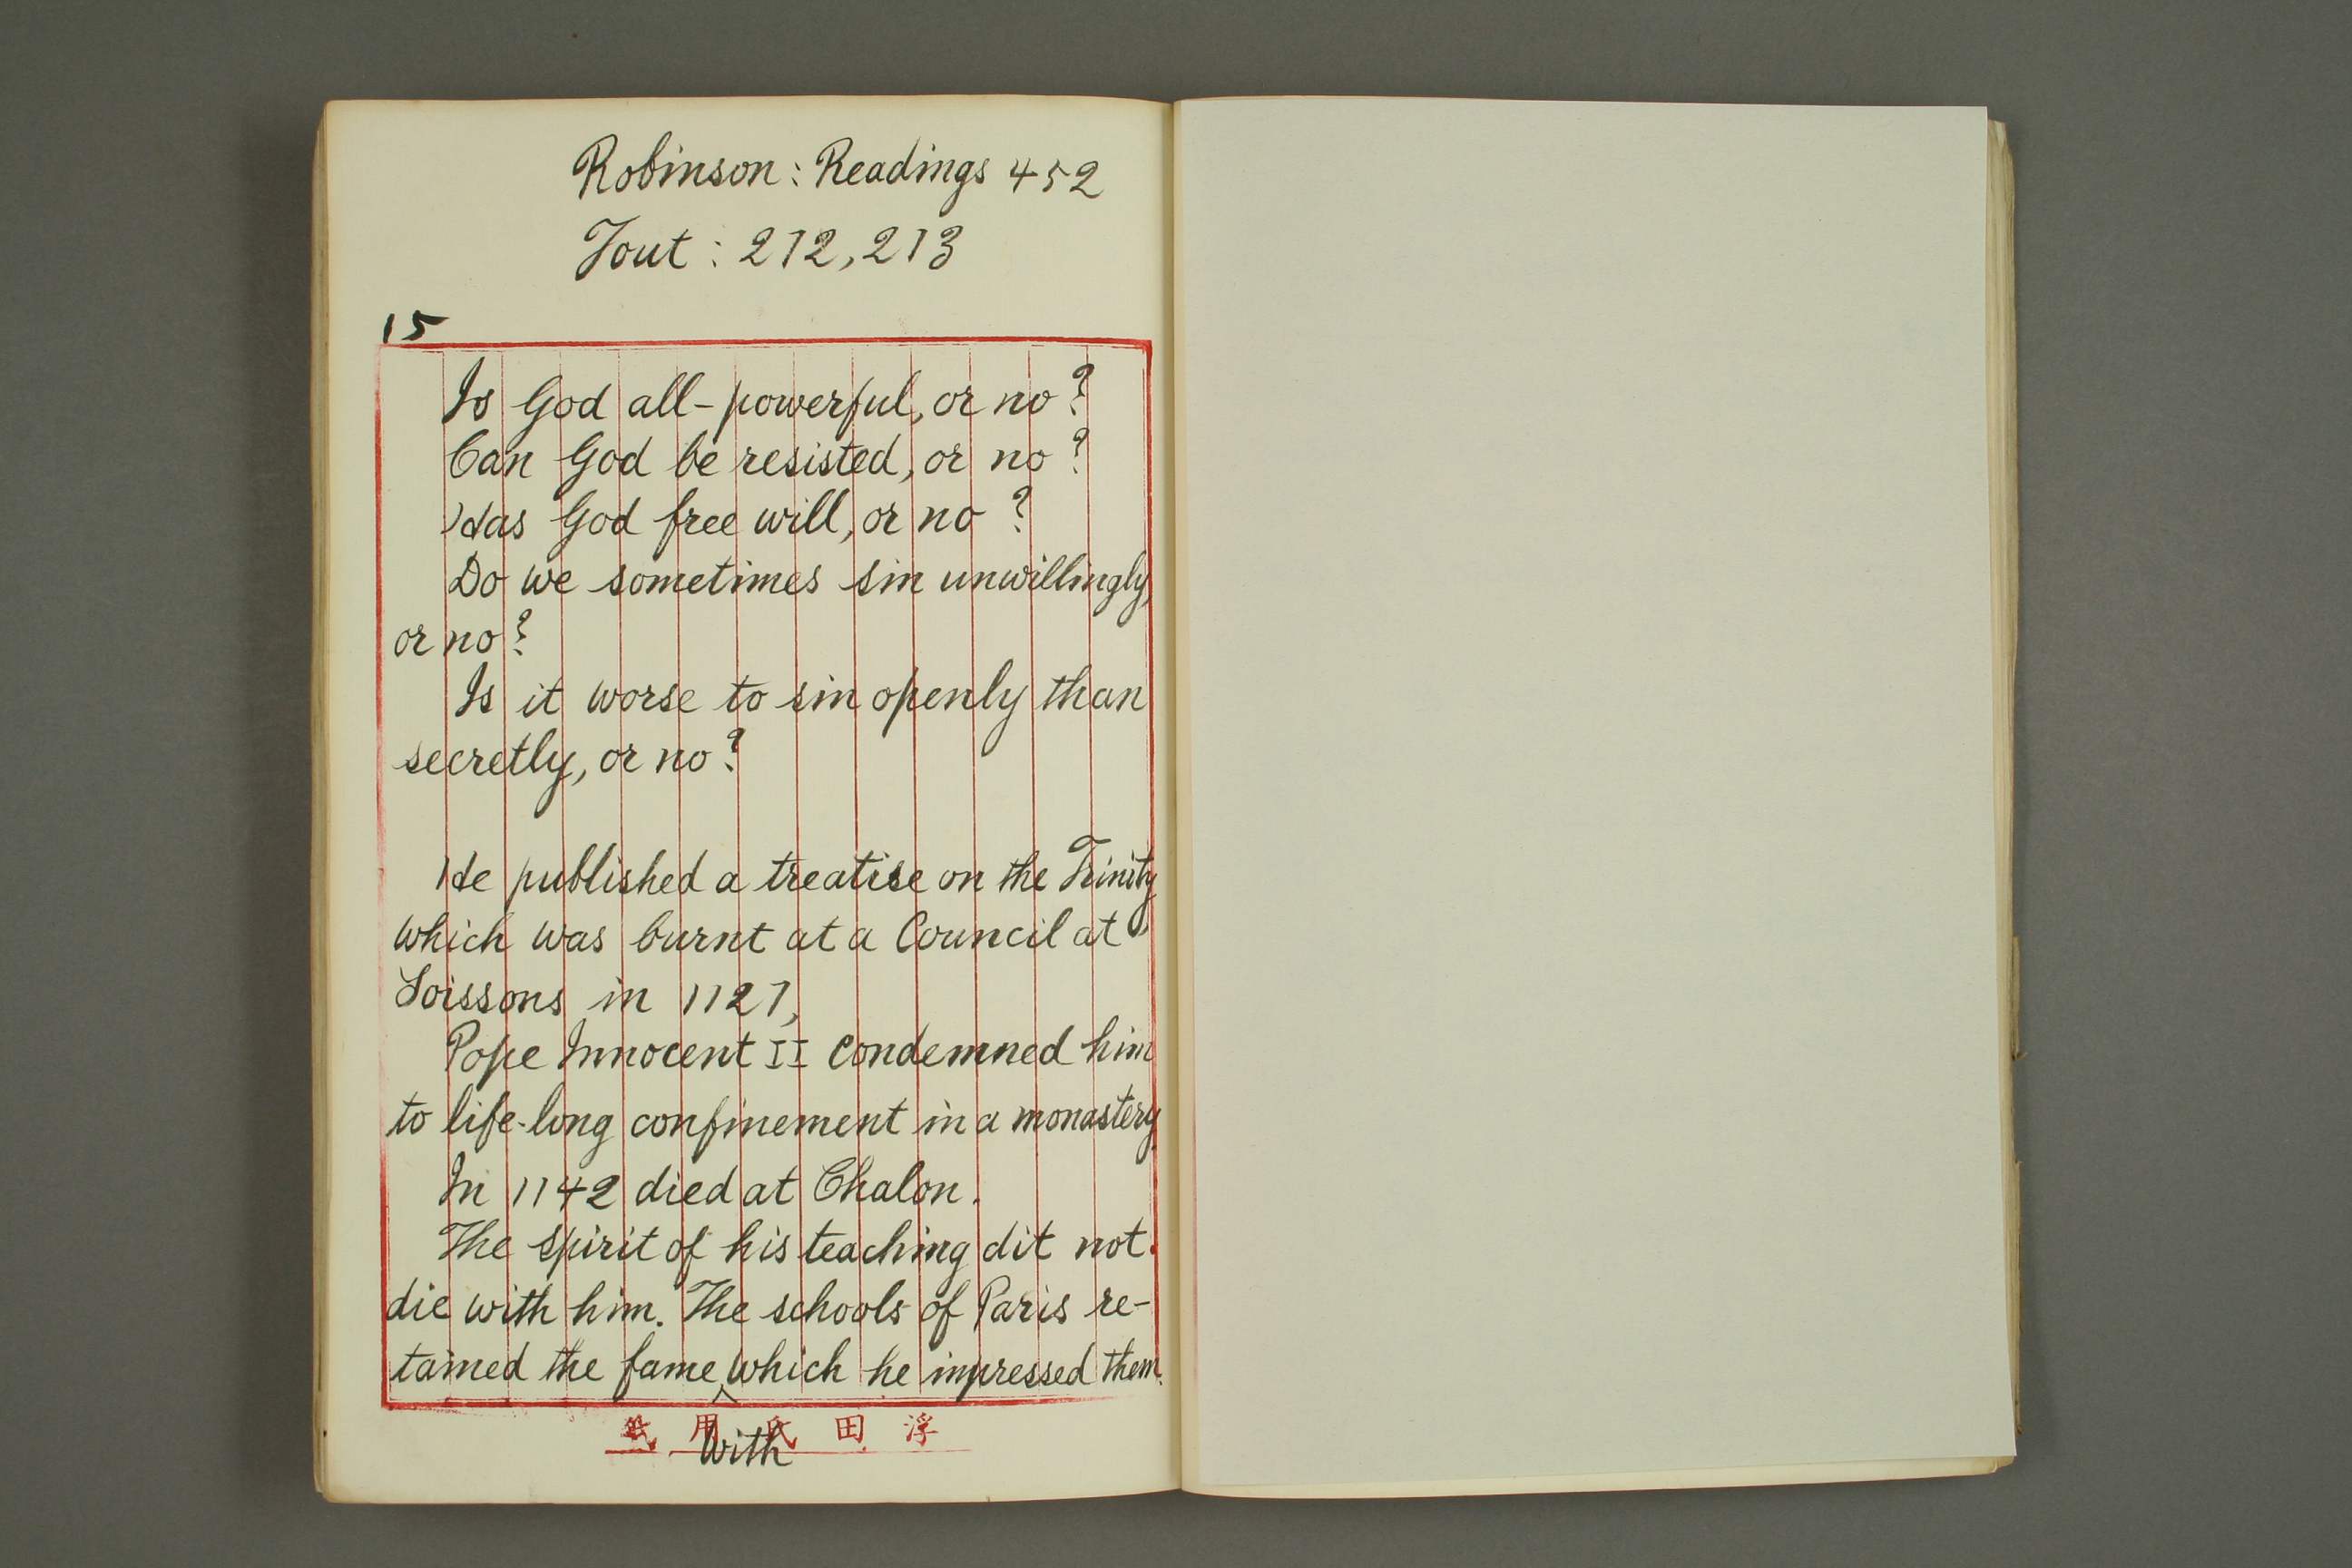 Robinson: Readings 452
Tout: 212, 213
15
Is God all-powerful, or no?
Can God be resisted, or no?
Has God free will, or no?
Do we sometimes sin unwillingly,
or no?
Is it worse to sin openly than
secretly, or no?
He published a treatise on the Trinity
which was burnt at a Council at
Soissons in 1121,
Pope Innocent II condemned him
to life-long confinement in a monastery.
In 1142 died at Chalon.
The spirit of his teaching dit not
die with him. The schools of Paris re-
tained the fame which he impressed them.
with
浮田氏用紙